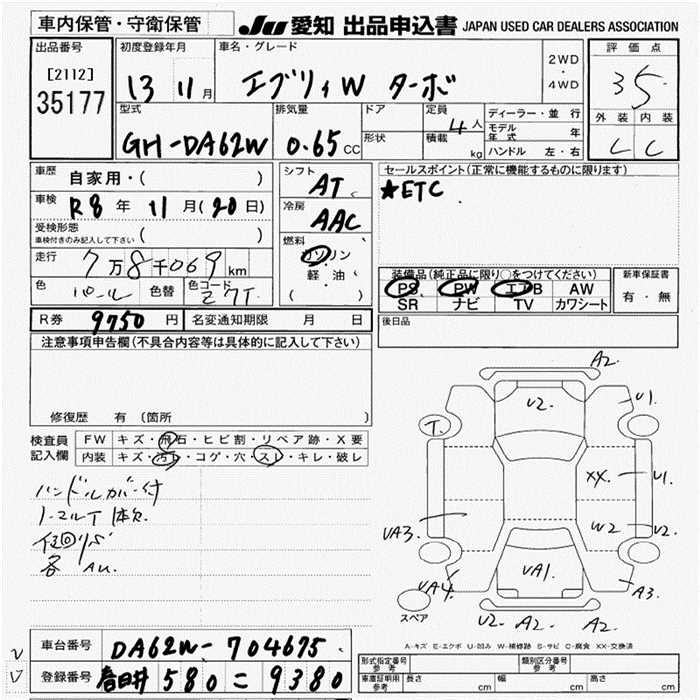 車内保管・守衛保管
JU 愛知 出品申込書 JAPAN USED CAR DEALERS ASSOCIATION
出品番号
[2112]
35177
初度登録年月
13 11月
車名・グレード
エブリィW ターボ
2WD
・
4WD
評価点
3.5
外装 内装
C C
型式
GH-DA62W
排気量
0.65cc
ドア
形状
定員
4人
積載
kg
ディーラー・並行
モデル年式 年
ハンドル 左・右
車歴
自家用・( )
車検
R8年 11月(20日)
受検形態
車検付きのみ記入して下さい ( )
走行
7万8千069km
色
パール
色替
色コード
Z7T
シフト
AT
冷房
AAC
燃料
ガソリン
・
軽油
( )
セールスポイント(正常に機能するものに限ります)
★ETC
装備品(純正品に限り○をつけてください)
PS PW エアB AW
SR ナビ TV カワシート
新車保証書
有・無
後日品
R券 9750円 名変通知期限 月 日
注意事項申告欄(不具合内容等は具体的に記入して下さい)
修復歴 有 (箇所 )
検査員記入欄
FW キズ・飛石・ヒビ割・リペア跡・X要
内装 キズ・汚れ・コゲ・穴・スレ・キレ・破レ
ハンドルカバー付
ノーマルT 欠
各 AU.
A2
U2
U1
T.
XX
U1
UA3
W2
U2
UA4
UA1
A3
スペア
U2 A2 A2
A-キズ E-エクボ U-凹み W-補修跡 S-サビ C-腐食 XX-交換済
車台番号 DA62W-704675
登録番号 春日井 580 = 9380
形式指定番号
参考
類別区分番号
参考
車庫証明用
参考
長さ cm 幅 cm 高さ cm